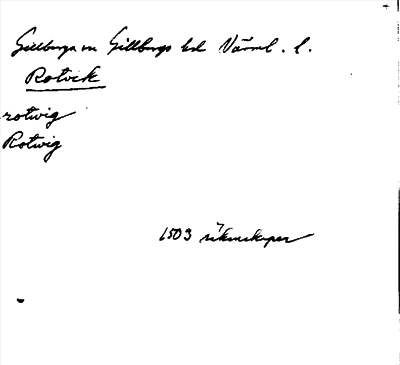 Gillberga sn Gillbergs hd Värml. l.
Rotvik
rotwig
Rotwig
1503 räkenskaper